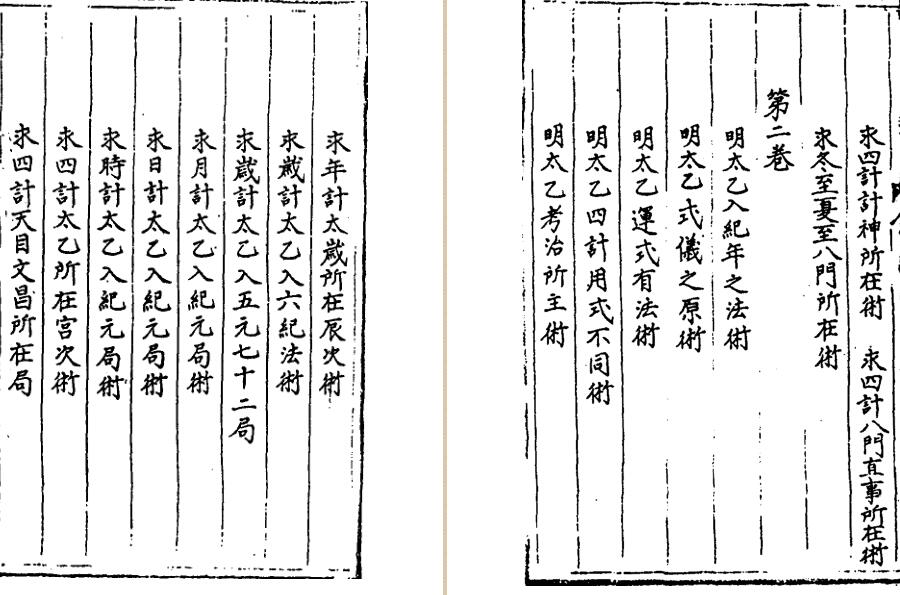 求四計計神所在術 求四計八門直事所在術
求冬至夏至八門所在術
第二卷
明太乙入紀年之法術
明太乙式儀之原術
明太乙運式有法術
明太乙四計用式不同術
明太乙考治所主術
求年計太歲所在辰次術
求歲計太乙入六紀法術
求歲計太乙入五元七十二局
求月計太乙入紀元局術
求日計太乙入紀元局術
求時計太乙入紀元局術
求四計太乙所在宮次術
求四計天目文昌所在局